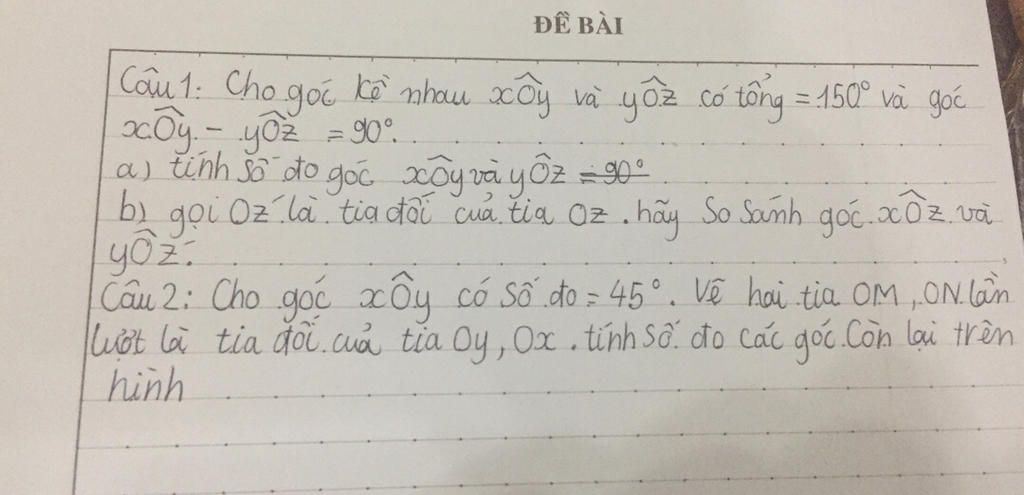 ĐỀ BÀI
Câu 1: Cho góc kề nhau xÔy và yÔz có tổng = 150° và góc
xÔy - yÔz = 90°.
a) tính số đo góc xÔy và yÔz = 90°
b) gọi Oz' là tia đối của tia Oz. hãy so sánh góc xÔz và
yÔz.
Câu 2: Cho góc xÔy có số đo = 45°. Vẽ hai tia OM, ON lần
lượt là tia đối của tia Oy, Ox. tính số đo các góc còn lại trên
hình